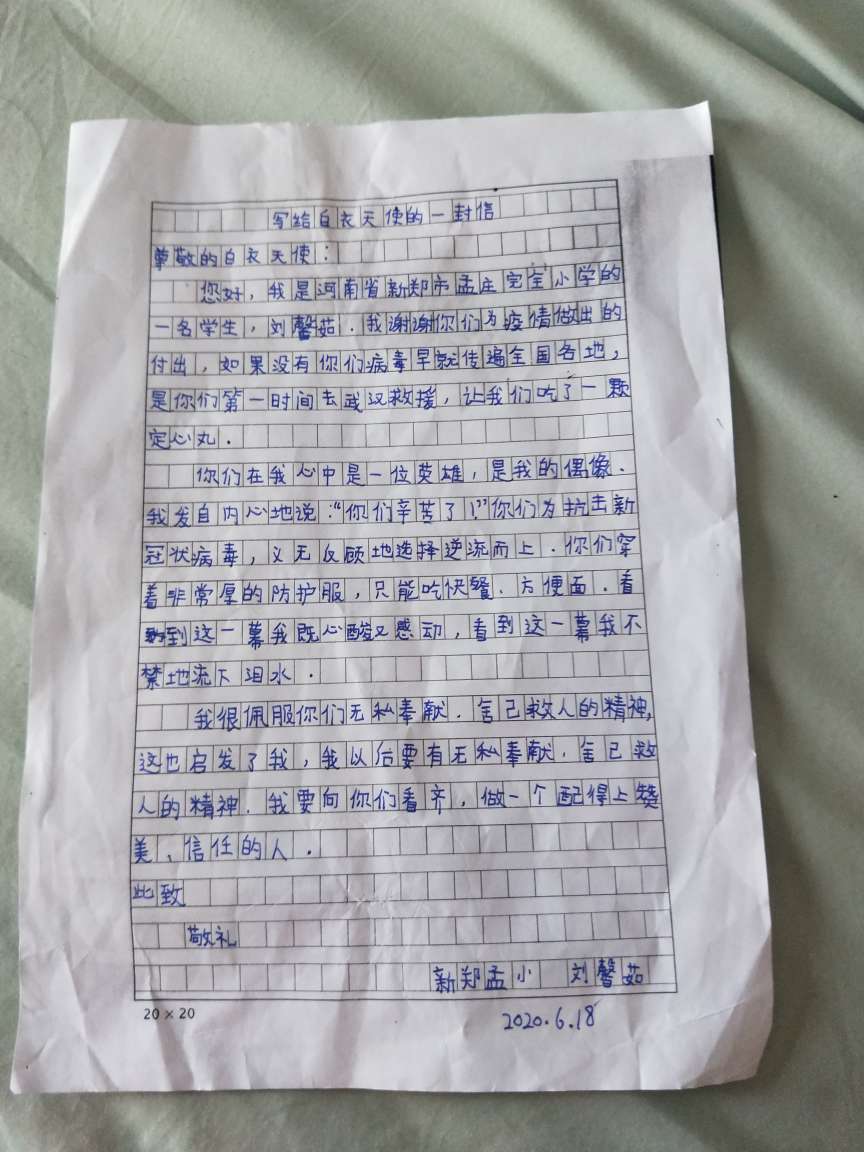 写给白衣天使的一封信
尊敬的白衣天使：
您好，我是河南省新郑市孟庄完全小学的
一名学生，刘馨茹．我谢谢你们为疫情做出的
付出，如果没有你们病毒早就传遍全国各地，
是你们第一时间去武汉救援，让我们吃了一颗
定心丸．
你们在我心中是一位英雄，是我的偶像．
我发自内心地说：“你们辛苦了！”你们为抗击新
冠状病毒，义无反顾地选择逆流而上．你们穿
着非常厚的防护服，只能吃快餐、方便面．看
到这一幕我既心酸又感动，看到这一幕我不
禁地流下泪水．
我很佩服你们无私奉献．舍己救人的精神，
这也启发了我，我以后要有无私奉献．舍己救
人的精神．我要向你们看齐，做一个配得上赞
美、信任的人．
此致
敬礼
新郑孟小 刘馨茹
20×20
2020.6.18